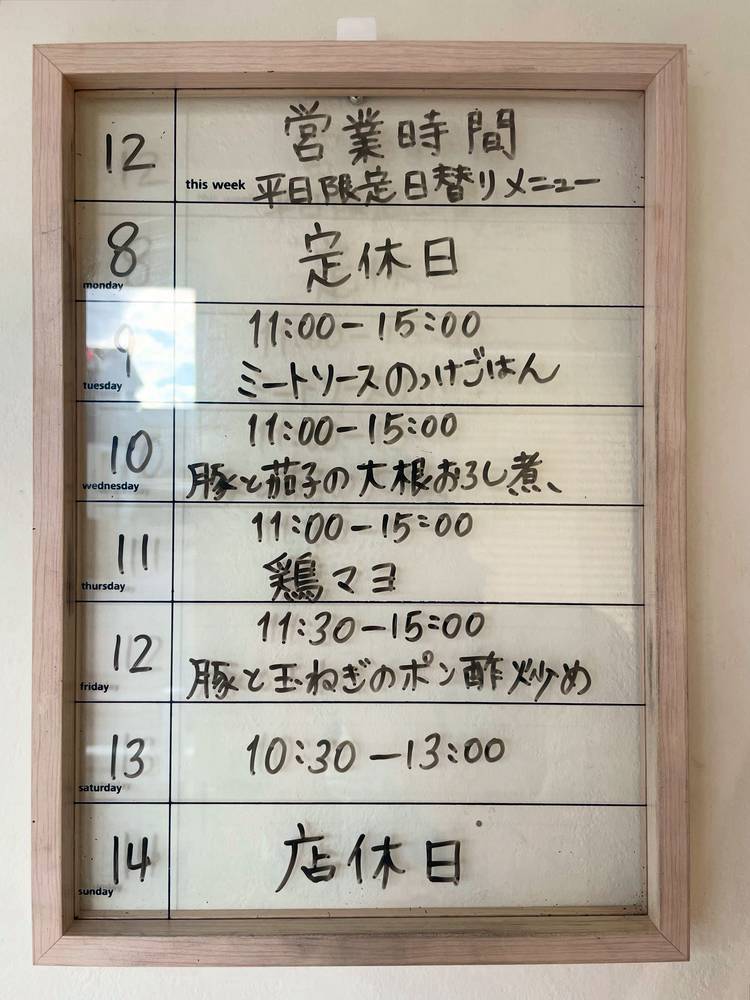 12
営業時間
this week 平日限定日替りメニュー
8
monday
定休日
9
tuesday
11:00-15:00
ミートソースのっけごはん
10
wednesday
11:00-15:00
豚と茄子の大根おろし煮、
11
thursday
11:00-15:00
鶏マヨ
12
friday
11:30-15:00
豚と玉ねぎのポン酢炒め
13
saturday
10:30-13:00
14
sunday
店休日